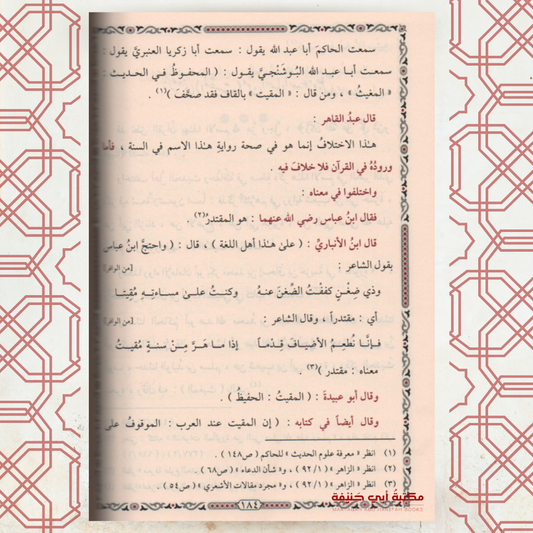 سمعت الحاكمَ أبا عبد الله يقول : سمعت أبا زكريا العنبريَّ يقول :
سمعت أبا عبد الله البُوشَنْجيَّ يقول : ( المحفوظُ في الحديث :
« المغيثُ » ، ومن قال : « المقيت » بالقاف فقد صحَّفَ )(١) .
قال عبدُ القاهر :
هذا الاختلافُ إنما هو في صحة روايةِ هذا الاسم في السنة ، فأما
ورودُهُ في القرآن فلا خلافَ فيه .
واختلفوا في معناه :
فقال ابنُ عباس رضي الله عنهما : هو المقتدرُ(٢) .
قال ابنُ الأنباريِّ : ( على هذا أهل اللغة ) ، قال : ( واحتجَّ ابنُ عباس
بقول الشاعر : [من الوافر]
وذي ضِغْنٍ كففتُ الضِّغنَ عنهُ وكنتُ على مساءتِهِ مُقِيتا
أي : مقتدراً ، وقال الشاعر : [من الوافر]
فإنَّا نُطعِمُ الأضيافَ قِدْماً إذا ما هَرَّ مِنْ سنةٍ مُقيتُ
معناه : مقتدر )(٣) .
وقال أبو عبيدةَ : ( المقيتُ : الحفيظُ ) .
وقال أيضاً في كتابه : ( إن المقيت عند العرب : الموقوفُ على
(١) انظر « معرفة علوم الحديث » للحاكم ( ص١٤٨ ) .
(٢) انظر « الزاهر » ( ٩٢/١ ) ، و« شأن الدعاء » ( ص٦٨ ) .
(٣) انظر « الزاهر » ( ٩٢/١ ) ، و« مجرد مقالات الأشعري » ( ص٥٤ ) .
١٨٤
مكتبة أبي حنيفة